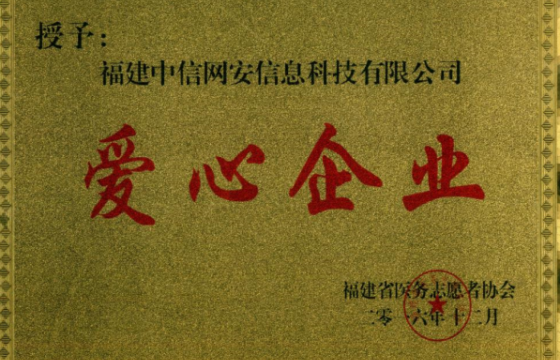 授予：
福建中信网安信息科技有限公司
爱心企业
福建省医务志愿者协会
二零一六年十二月